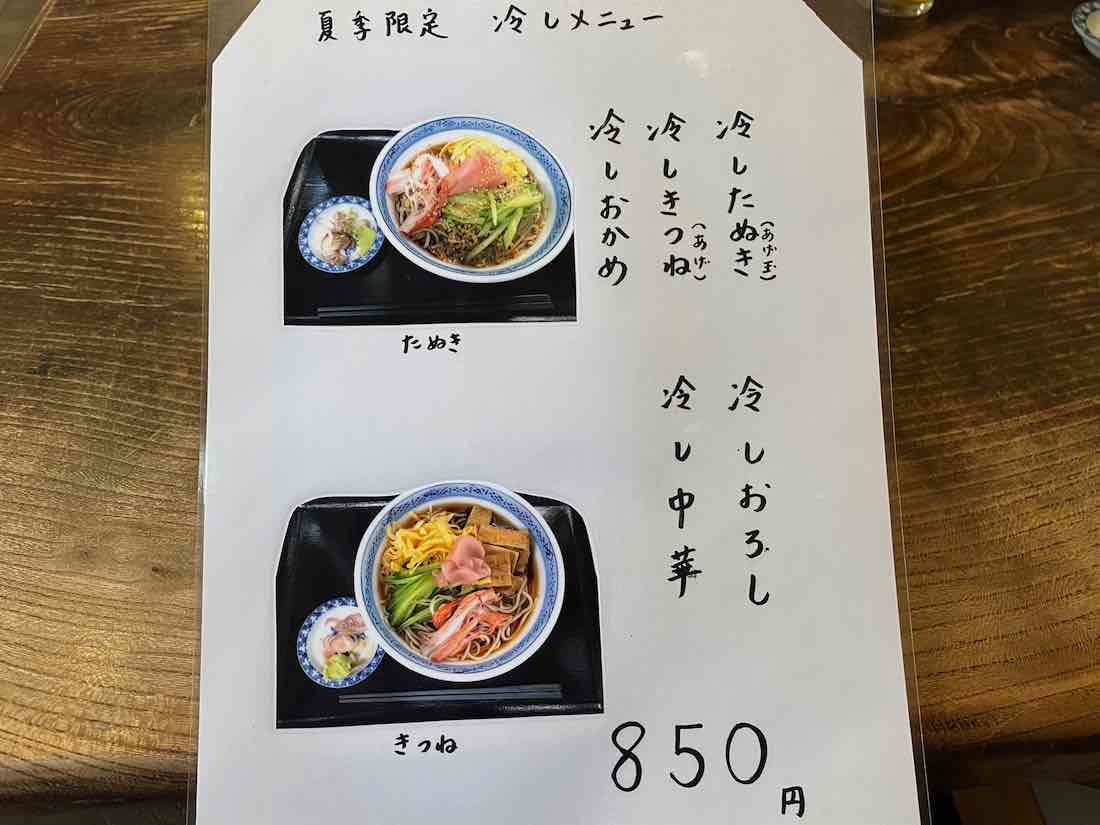 夏季限定　冷しメニュー
冷したぬき（あげ玉）
冷しきつね（あげ）
冷しおかめ
たぬき
冷しおろし
冷し中華
きつね
850円